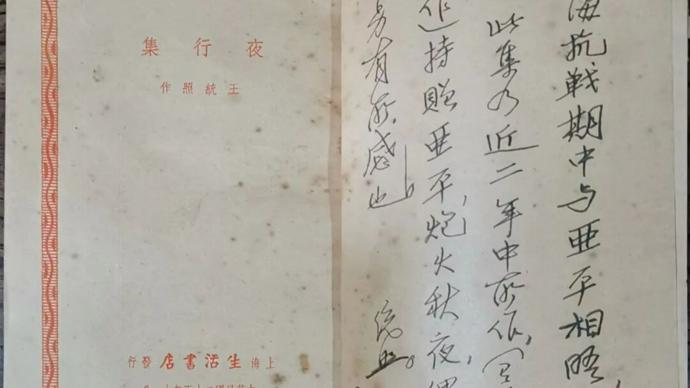 海抗戰期中与亜平相晤
此集乃近二年中所作，
持贈亜平，炮火秋夜，
有所感也。
统照。
夜行集
王統照作
上海生活書店發行